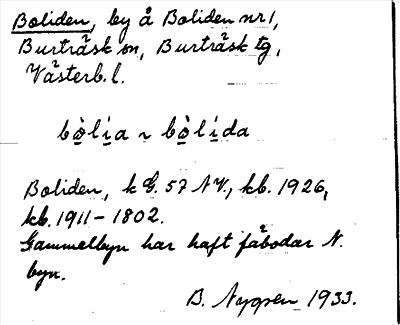 Boliden, by å Boliden nr 1,
Burträsk sn, Burträsk tg,
Västerb. l.
bò̲lí̲a ~ bò̲lí̲da
Boliden, k G. 57 NV., kb. 1926,
kb. 1911-1802.
Gammelbyn har haft fäbodar N.
byn.
B. Nygren 1933.